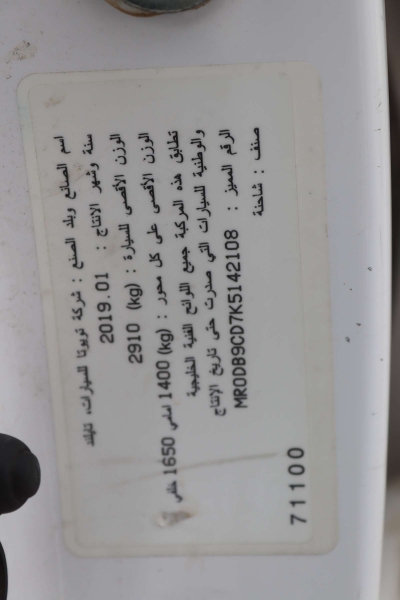 اسم الصانع وبلد الصنع : شركة تويوتا للسيارات، تايلند
سنة وشهر الانتاج : 2019.01
الوزن الأقصى للسيارة : (kg) 2910
الوزن الأقصى على كل محور : (kg) 1400 امامي 1650 خلفي
تطابق هذه المركبة جميع اللوائح الفنية الخليجية
والوطنية للسيارات التي صدرت حتى تاريخ الإنتاج
الرقم المميز : MR0DB9CD7K5142108
صنف : شاحنة
71100